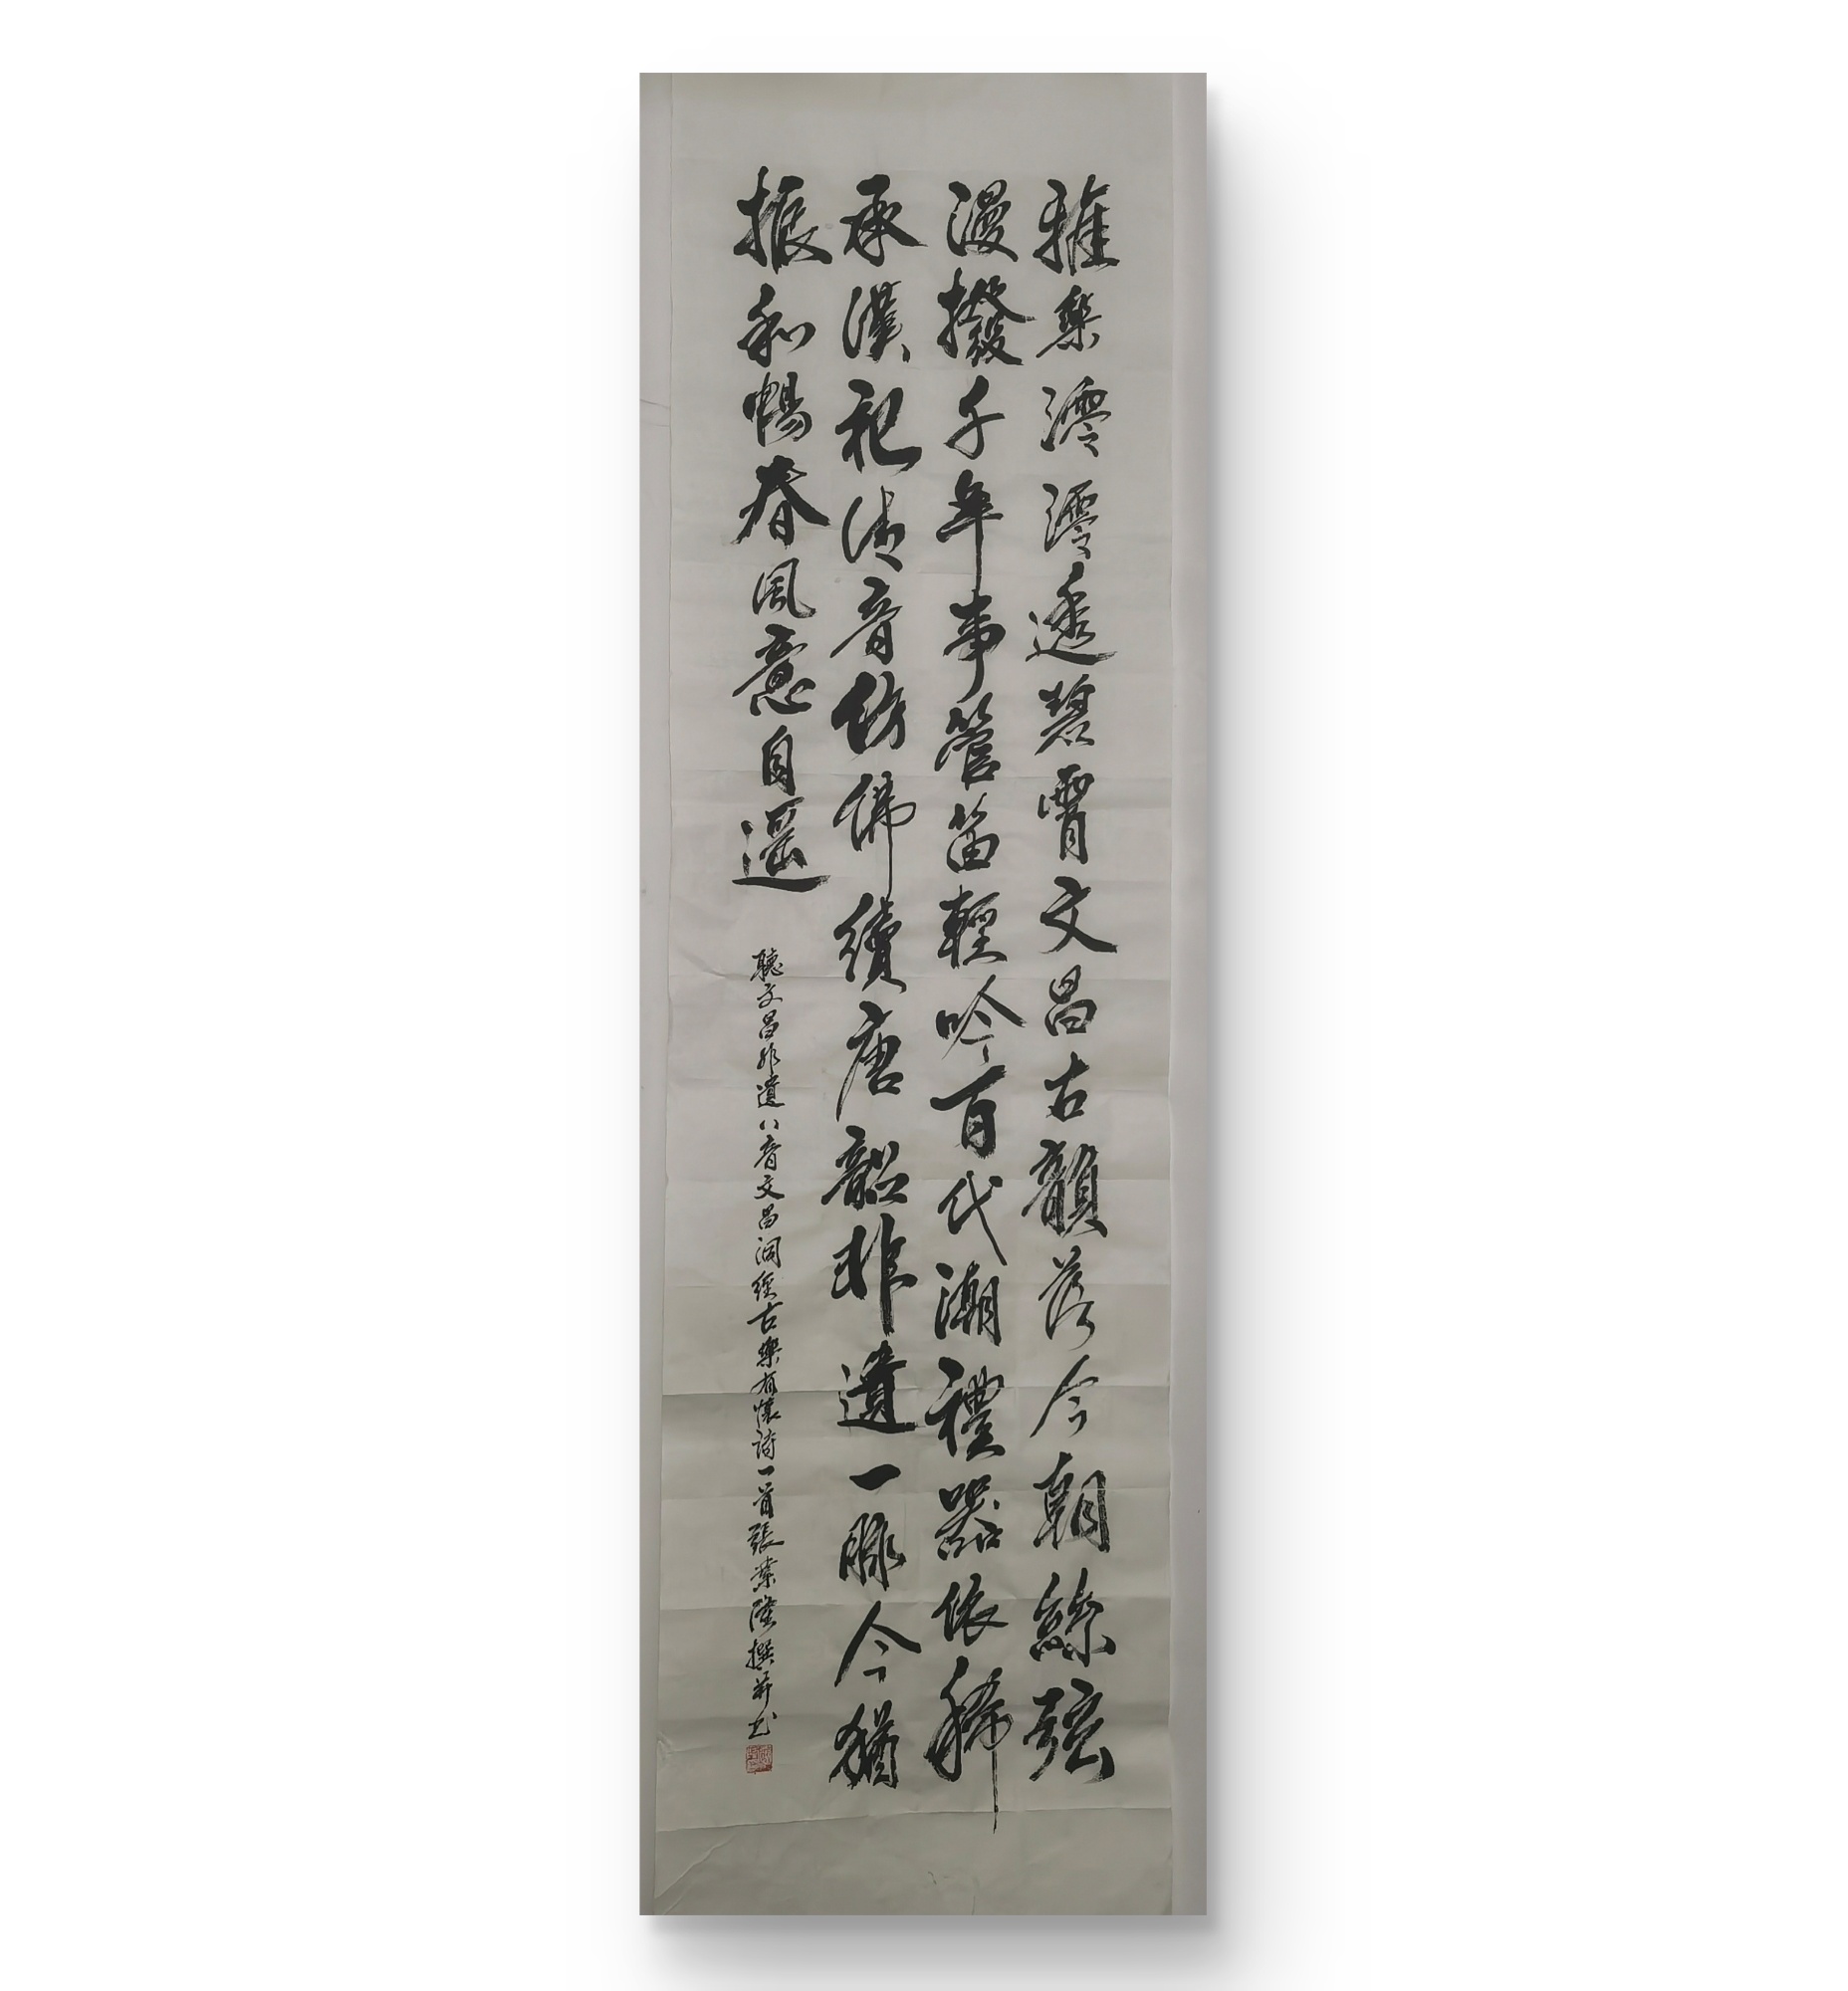 雅樂澪澪透碧霄文昌古韻落今朝絲弦
漫撥千年事管笛輕吟百代潮禮器依稀
承漢祀清音仿佛續唐韶非遺一脉今猶
振和暢春風意自遥
聽文昌非遺八音文昌洞經古樂有懷詩一首張業隆撰并书